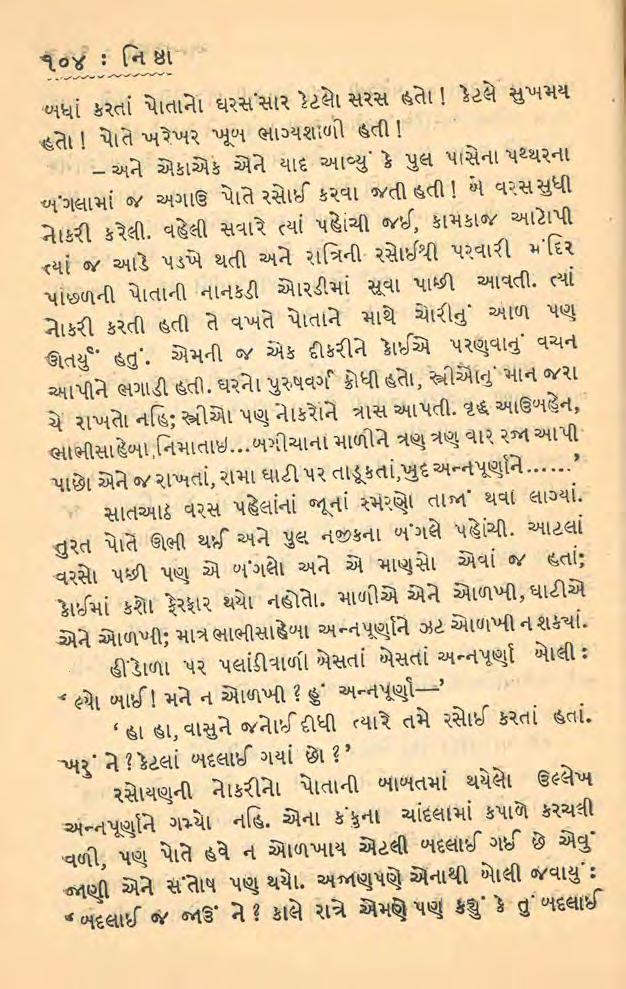 ૧૦૪ : નિષ્ઠા
બધાં કરતાં પોતાનો ઘરસંસાર કેટલો સરસ હતો! કેટલે સુખમય
હતો! પોતે ખરેખર ખૂબ ભાગ્યશાળી હતી!
– અને એકાએક એને યાદ આવ્યું કે પુલ પાસેના પથ્થરના
બંગલામાં જ અગાઉ પોતે રસોઈ કરવા જતી હતી! બે વરસ સુધી
નોકરી કરેલી. વહેલી સવારે ત્યાં પહોંચી જઈ, કામકાજ આટોપી
ત્યાં જ આડે પડખે થતી અને રાત્રિની રસોઈથી પરવારી મંદિર
પાછળની પોતાની નાનકડી ઓરડીમાં સૂવા પાછી આવતી. ત્યાં
નોકરી કરતી હતી તે વખતે પોતાને માથે ચોરીનું આળ પણ
ઊતર્યું હતું. એમની જ એક દીકરીને કોઈએ પરણવાનું વચન
આપીને ભગાડી હતી. ઘરનો પુરુષવર્ગ ક્રોધી હતો, સ્ત્રીઓનું માન જરા
યે રાખતો નહિ; સ્ત્રીઓ પણ નોકરોને ત્રાસ આપતી. વૃદ્ધ આઉબહેન,
ભાભીસાહેબા, નિમાતાઇ...બગીચાના માળીને ત્રણ ત્રણ વાર રજા આપી
પાછો એને જ રાખતાં, રામા ઘાટી પર તાડૂકતાં, ખુદ અન્નપૂર્ણાને......’
સાતઆઠ વરસ પહેલાંનાં જૂનાં સ્મરણો તાજાં થવા લાગ્યાં.
તુરત પોતે ઊભી થઈ અને પુલ નજીકના બંગલે પહોંચી. આટલાં
વરસો પછી પણ એ બંગલો અને એ માણસો એવાં જ હતાં;
કોઈમાં કશો ફેરફાર થયો નહોતો. માળીએ એને ઓળખી, ઘાટીએ
એને ઓળખી; માત્ર ભાભીસાહેબા અન્નપૂર્ણાને ઝટ ઓળખી ન શક્યાં.
હીંડોળા પર પલાંઠીવાળી બેસતાં બેસતાં અન્નપૂર્ણા બોલી :
‘ લ્યો બાઈ! મને ન ઓળખી ? હું અન્નપૂર્ણા—’
‘ હા હા, વાસુને જનોઈ દીધી ત્યારે તમે રસોઈ કરતાં હતાં.
ખરું ને ? કેટલાં બદલાઈ ગયાં છો ?’
રસોયણની નોકરીનો પોતાની બાબતમાં થયેલો ઉલ્લેખ
અન્નપૂર્ણાને ગમ્યો નહિ. એના કંકુના ચાંદલામાં કપાળે કરચલી
વળી, પણ પોતે હવે ન ઓળખાય એટલી બદલાઈ ગઈ છે એવું
જાણી એને સંતોષ પણ થયો. અજાણપણે એનાથી બોલી જવાયું :
‘ બદલાઈ જ જાઉં ને ? કાલે રાત્રે એમણે પણ કહ્યું કે તું બદલાઈ